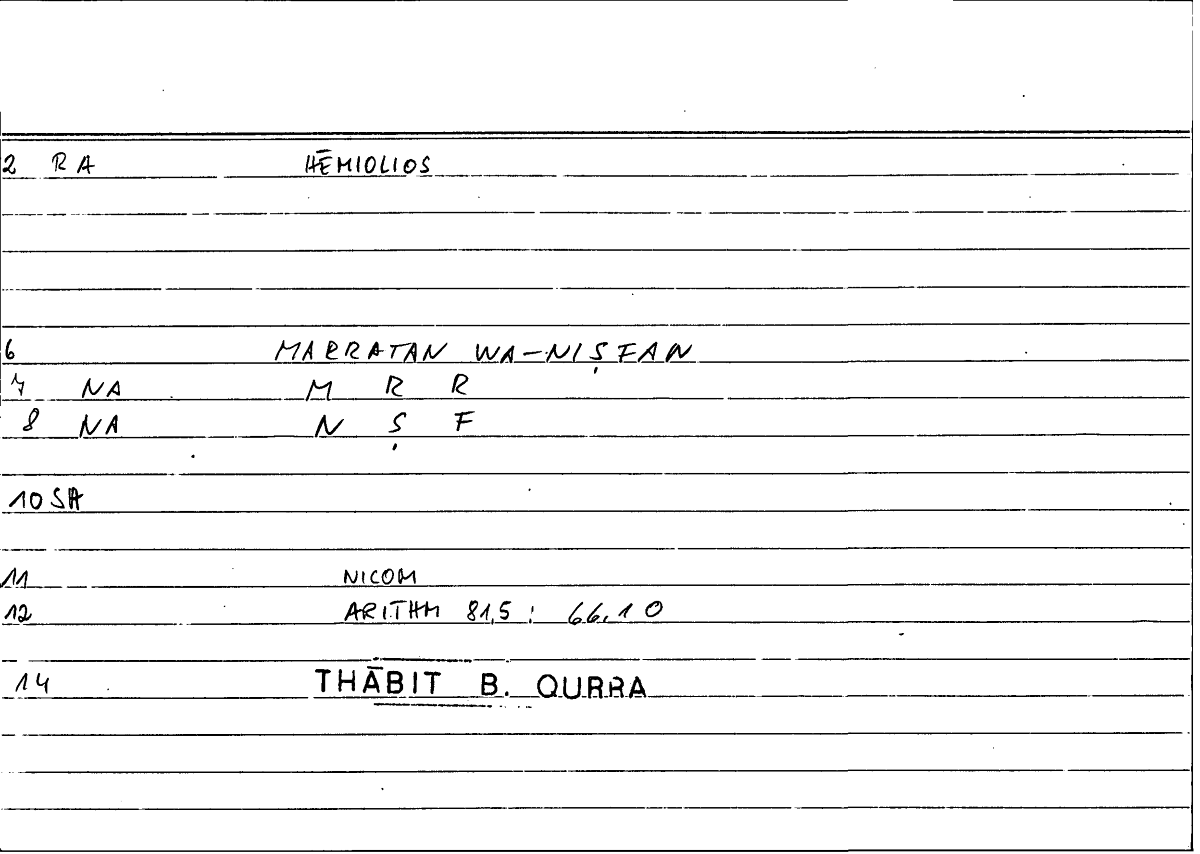 2 RA HĒMIOLIOS
6 MARRATAN WA-NIṢFAN
7 NA M R R
8 NA N Ṣ F
10 SA
11 NICOM
12 ARITHM 81,5 : 66,10
14 THĀBIT B. QURRA